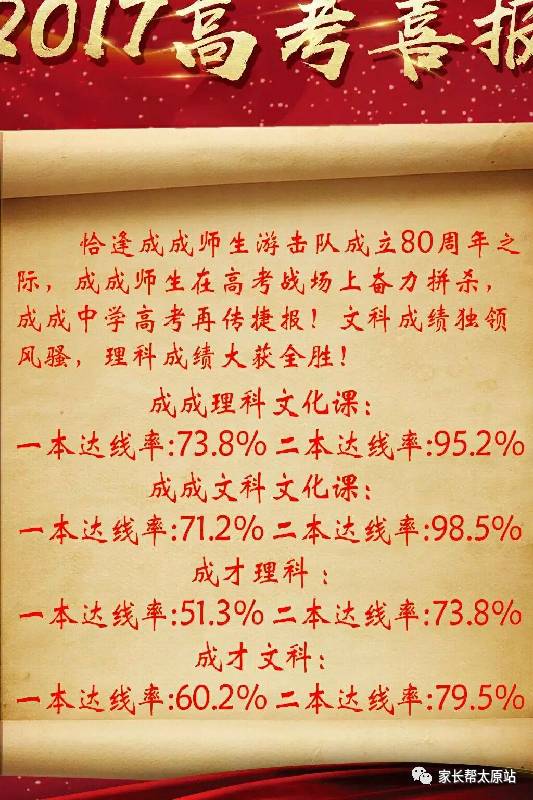 2017高考喜报
恰逢成成师生游击队成立80周年之
际，成成师生在高考战场上奋力拼杀，
成成中学高考再传捷报！文科成绩独领
风骚，理科成绩大获全胜！
成成理科文化课：
一本达线率:73.8% 二本达线率:95.2%
成成文科文化课：
一本达线率:71.2% 二本达线率:98.5%
成才理科：
一本达线率:51.3% 二本达线率:73.8%
成才文科：
一本达线率:60.2% 二本达线率:79.5%
家长帮太原站